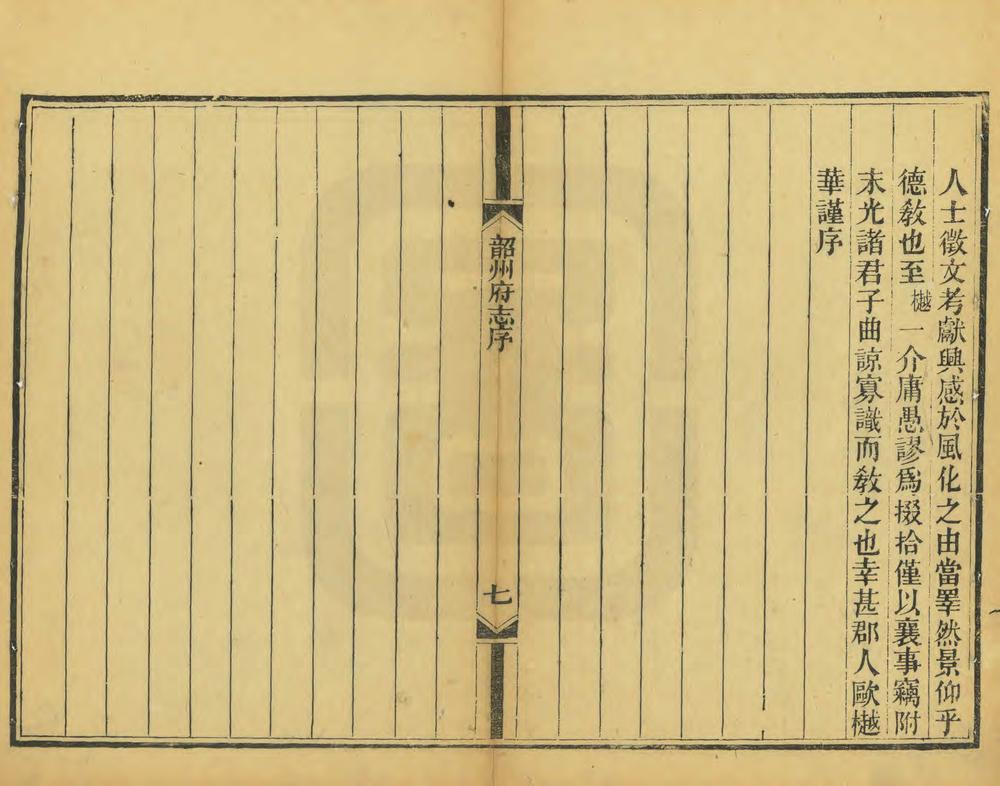 人士徵文考獻興感於風化之由當睪然景仰乎
德敎也至樾一介庸愚謬爲掇拾僅以襄事竊附
末光諸君子曲諒寡識而敎之也幸甚郡人歐樾
華謹序
韶州府志序
七